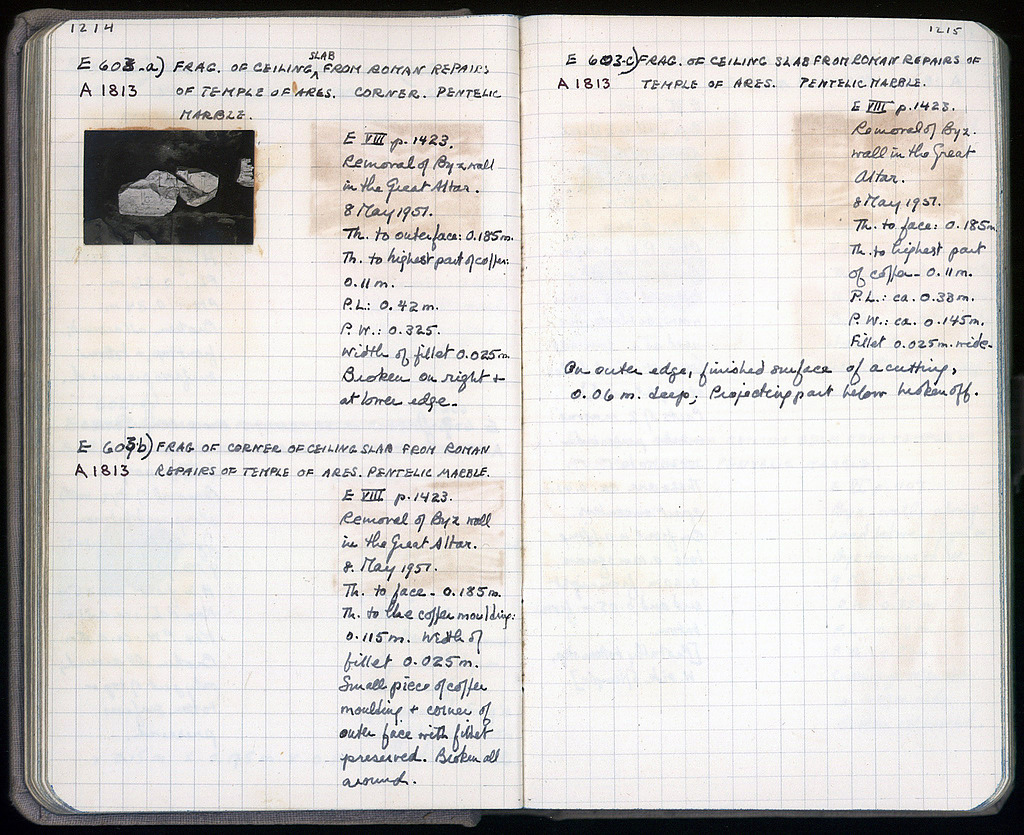 1214
E 603-a) FRAG. OF CEILING SLAB FROM ROMAN REPAIRS
A 1813 OF TEMPLE OF ARES. CORNER. PENTELIC
MARBLE.
E VIII p. 1423.
Removal of Byz wall
in the Great Altar.
8 May 1951.
Th. to outer face: 0.185m.
Th. to highest part of coffer:
0.11 m.
P.L: 0.42 m.
P.W.: 0.325.
Width of fillet 0.025m
Broken on right +
at lower edge.
E 603b) FRAG OF CORNER OF CEILING SLAB FROM ROMAN
A 1813 REPAIRS OF TEMPLE OF ARES. PENTELIC MARBLE.
E VIII p. 1423.
Removal of Byz wall
in the Great Altar.
8. May 1951.
Th. to face - 0.185m.
Th. to the coffer moulding:
0.115m. Width of
fillet 0.025m.
Small piece of coffer
moulding + corner of
outer face with fillet
preserved. Broken all
around.
1215
E 603-c) FRAG. OF CEILING SLAB FROM ROMAN REPAIRS OF
A 1813 TEMPLE OF ARES. PENTELIC MARBLE.
E VIII p. 1423.
Removal of Byz.
wall in the Great
Altar.
8 May 1951.
Th. to face: 0.185m
Th. to highest part
of coffer - 0.11m.
P.L.: ca. 0.38m.
P.W.: ca. 0.145m.
Fillet 0.025m. wide.
On outer edge, finished surface of a cutting,
0.06 m. deep; Projecting part below broken off.